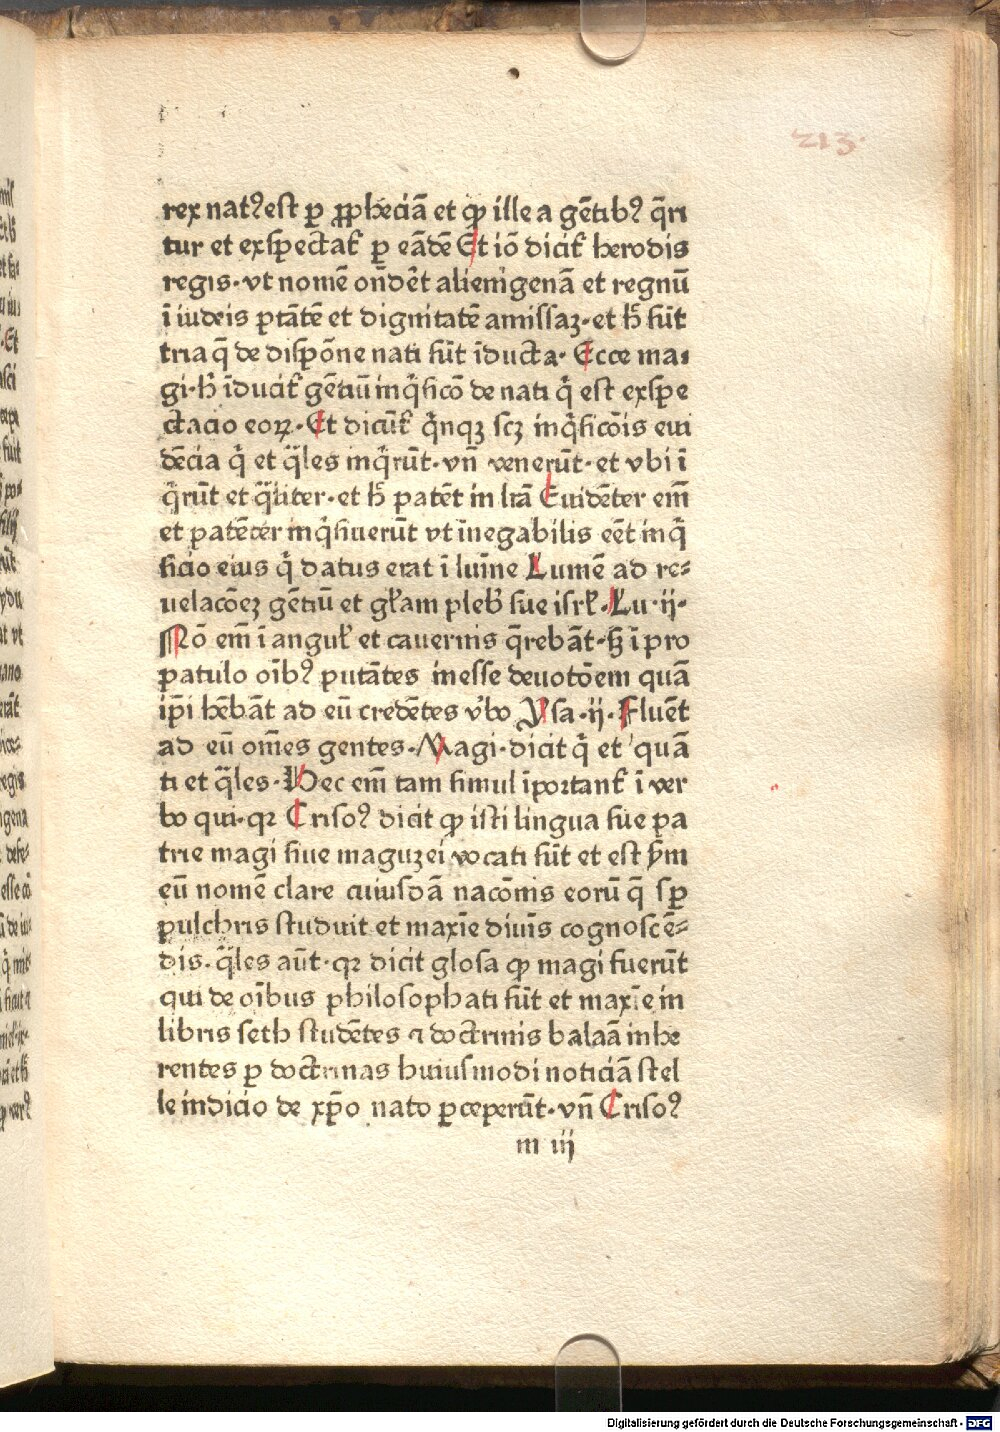 213.
rex natꝰ est ꝑ ꝓpheciã et ꝙ ille a gẽtibꝰ q̃ri
tur et exspectat᷑ ꝑ eãdẽ Et iõ dicit᷑ herodis
regis·vt nomẽ oñdẽt alienigenã et regnũ
ĩ iudeis ptãtẽ et dignitatẽ amissaꝫ·et h̃ sũt
tria q̃ de dispõne nati sũt ĩducta· Ecce ma⸗
gi·h̃ ĩducit᷑ gẽtiũ inq̇sicõ de nati q̇ est exspe
ctacio eoꝝ·Et dicũt᷑ q̇nqꝫ scꝫ inq̇sicõis eui
dẽcia q̇ et q̃les inq̇rũt·vñ venerũt·et vbi ĩ
q̇rũt et q̃liter·et h̃ patẽt in lr̃a Euidẽter em̃
et patẽter inq̇siuerũt vt ĩnegabilis eẽt inq̇
sicio eius q̇ datus erat ĩ lumĩe Lumẽ ad re⸗
uelacõeꝫ gẽtiũ et gl̃am pleb̃ sue isrl̃·Lu·ij·
Nõ em̃ ĩ angul̃ et cauernis q̃rebãt·sꝫ ĩ pro
patulo oĩbꝰ putãtes inesse deuotõem quã
ip̃i hẽbãt ad eũ credẽtes v̓bo Ysa·ij·Fluẽt
ad eũ om̃es gentes·Magi·dicit q̇ et quã
ti et q̃les·Hec em̃ tam simul ĩportant᷑ ĩ ver
bo qui·qꝛ Crisoꝰ dicit ꝙ isti lingua sue pa
trie magi siue maguzei vocati sũt et est p̓m
eũ nomẽ clare cuiusdã nacõnis eorũ q̃ sꝑ
pulchris studuit et maxĩe diuĩs cognoscẽ⸗
dis·q̃les aũt·qꝛ dicit glosa ꝙ magi fuerũt
qui de oĩbus philosophati sũt et maxĩe in
libris seth studẽtes ⁊ doctrinis balaã inhe
rentes ꝑ doctrinas huiusmodi noticiã stel
le indicio de xp̃o nato ꝑceperũt·vñ Crisoꝰ
m iij
Digitalisierung gefördert durch die Deutsche Forschungsgemeinschaft - DFG